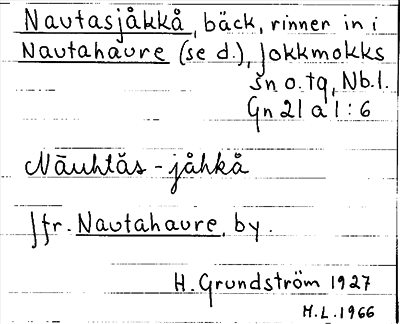 Nautasjåkkå, bäck, rinner in i
Nautahaure (se d.), Jokkmokks
sn o. tg, Nb.l.
Gn 21 a 1:6
Nāuhtăs-jåhkå
Jfr. Nautahaure, by.
H. Grundström 1927
H.L. 1966